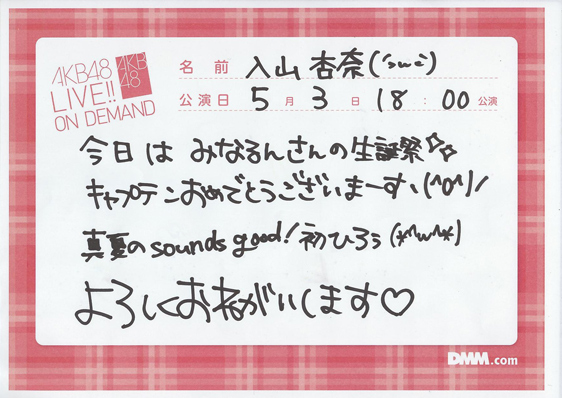 AKB48
LIVE!!
ON DEMAND
AKB
48
名前 入山杏奈(´ωﾐ)
公演日 5月3日 18:00公演
今日は みなるんさんの生誕祭☆☆
キャプテンおめでとうございまーすヽ(^o^)ノ
真夏のsounds good!初ひろう(*^ω^*)
よろしくおねがいします♡
DMM.com